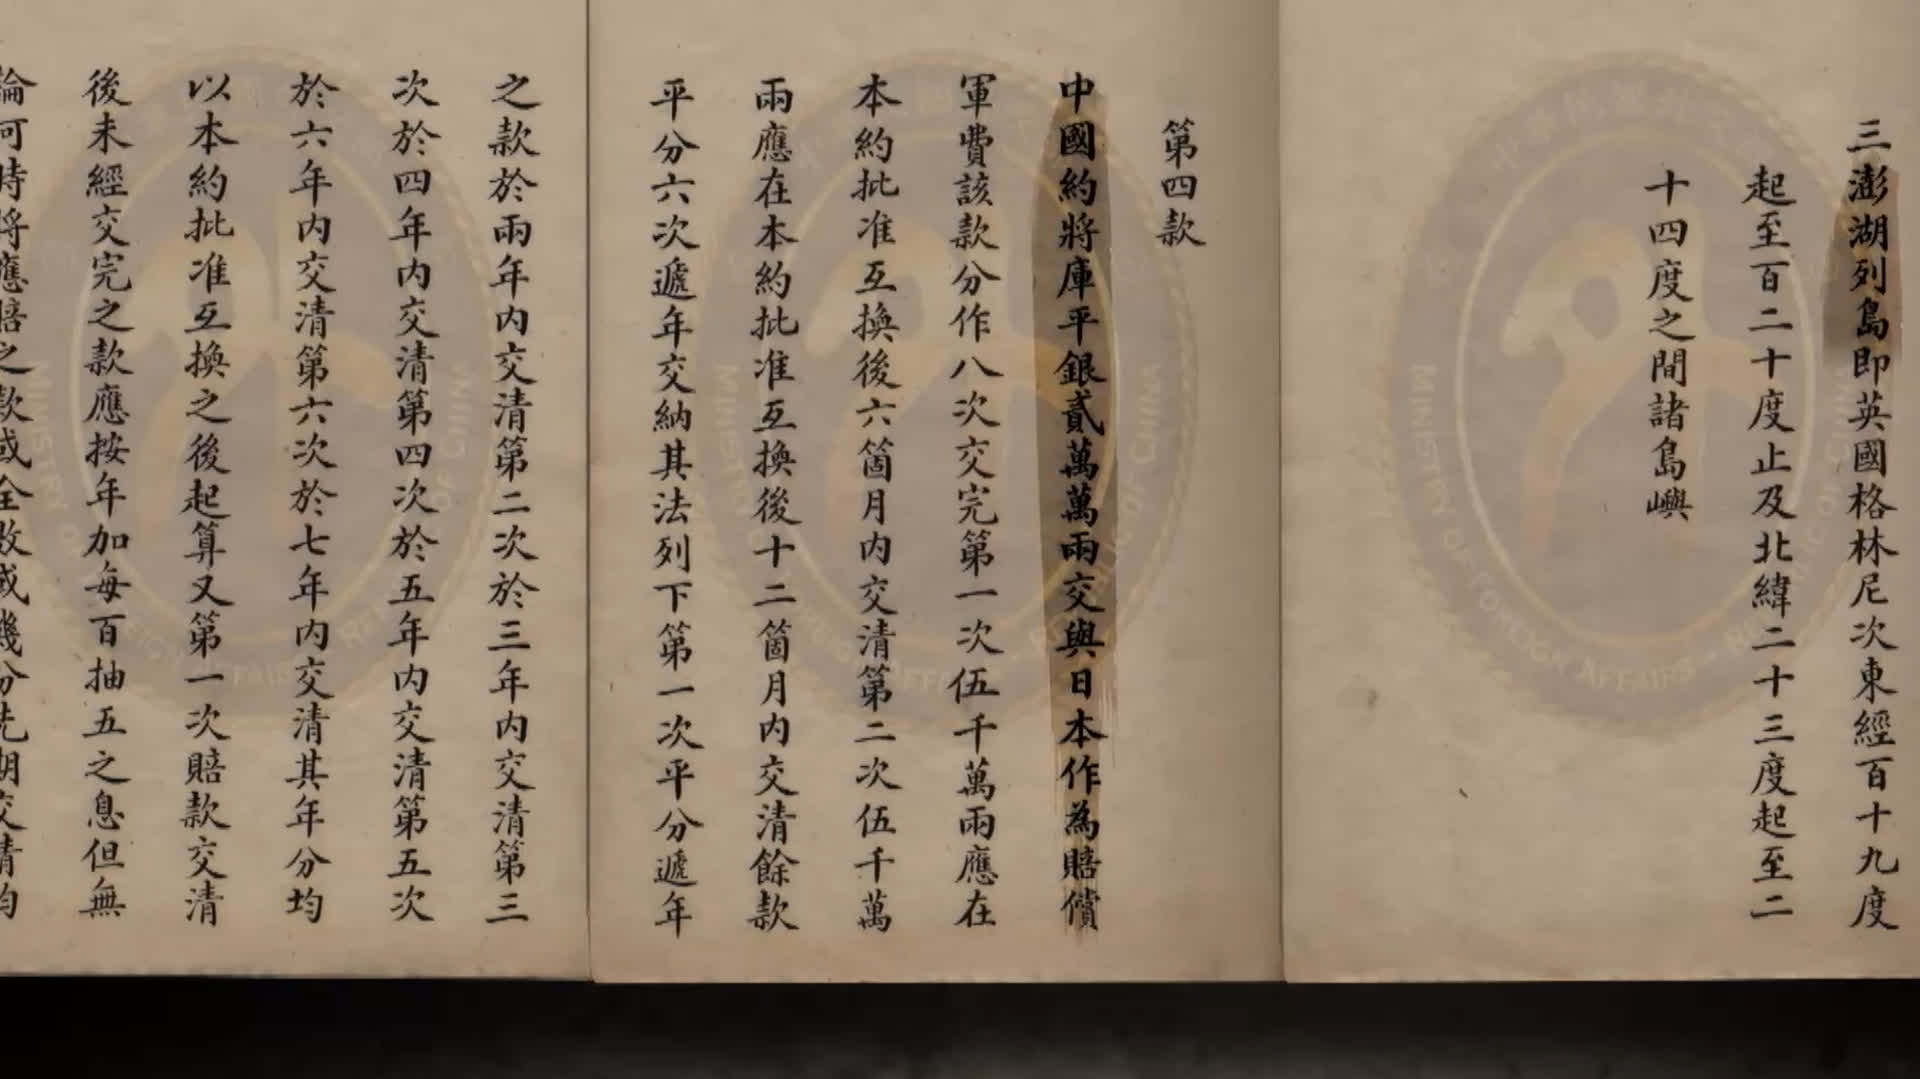 三澎湖列島即英國格林尼次東經百十九度
起至百二十度止及北緯二十三度起至二
十四度之間諸島嶼
第四款
中國約將庫平銀貳萬萬兩交與日本作為賠償
軍費該款分作八次交完第一次伍千萬兩應在
本約批准互換後六箇月內交清第二次伍千萬
兩應在本約批准互換後十二箇月內交清餘款
平分六次遞年交納其法列下第一次平分遞年
之款於兩年內交清第二次於三年內交清第三
次於四年內交清第四次於五年內交清第五次
於六年內交清第六次於七年內交清其年分均
以本約批准互換之後起算又第一次賠款交清
後未經交完之款應按年加每百抽五之息但無
論何時將應賠之款或全數或幾分先期交清均
MINISTRY OF FOREIGN AFFAIRS - REPUBLIC OF CHINA
MINISTRY OF FOREIGN AFFAIRS - REPUBLIC OF CHINA
MINISTRY OF FOREIGN AFFAIRS - REPUBLIC OF CHINA